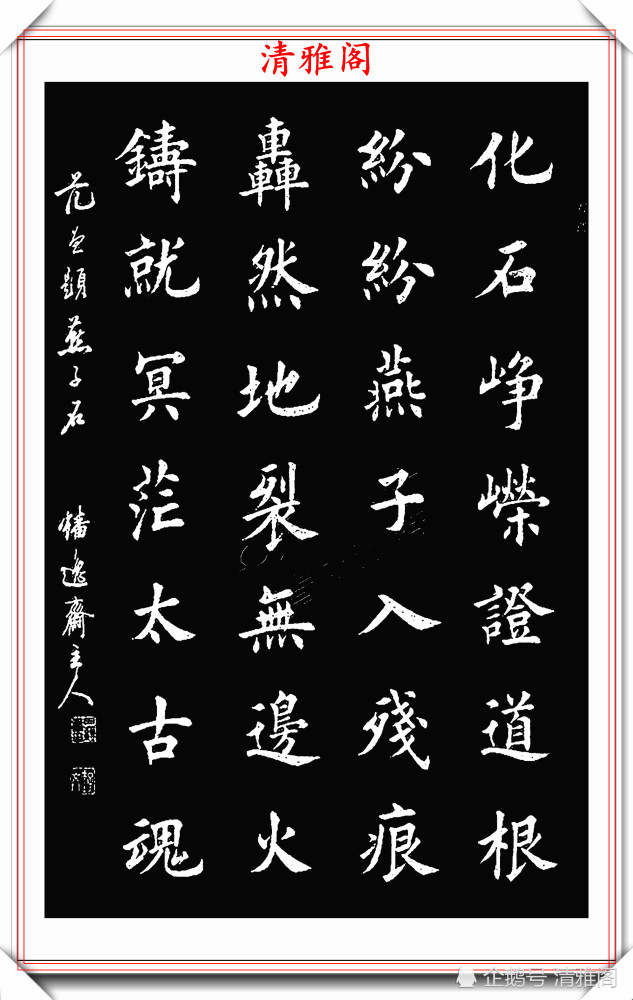 清雅阁
化石峥嶸證道根
紛紛燕子入殘痕
轟然地裂無邊火
鑄就冥茫太古魂
范曾題燕子石
蟠逸齋主人
企鹅号 清雅阁